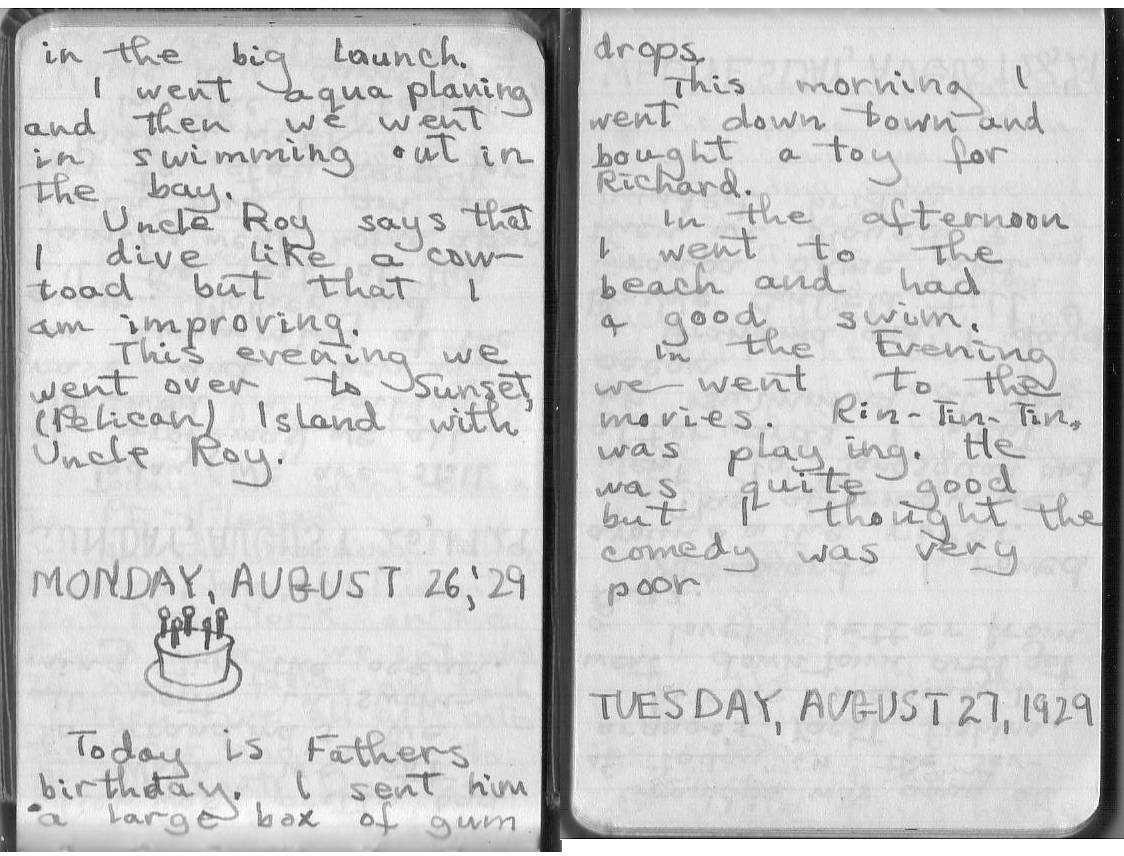 in the big launch.
I went aqua planing
and then we went
in swimming out in
the bay.
Uncle Roy says that
I dive like a cow-
toad but that I
am improving.
This evening we
went over to Sunset,
(Pelican) Island with
Uncle Roy.
MONDAY, AUGUST 26, '29
Today is Fathers
birthday. I sent him
a large box of gum
drops.
This morning I
went down town and
bought a toy for
Richard.
In the afternoon
I went to the
beach and had
a good swim.
In the Evening
we went to the
movies. Rin-Tin-Tin.
was playing. He
was quite good
but I thought the
comedy was very
poor.
TUESDAY, AUGUST 27, 1929